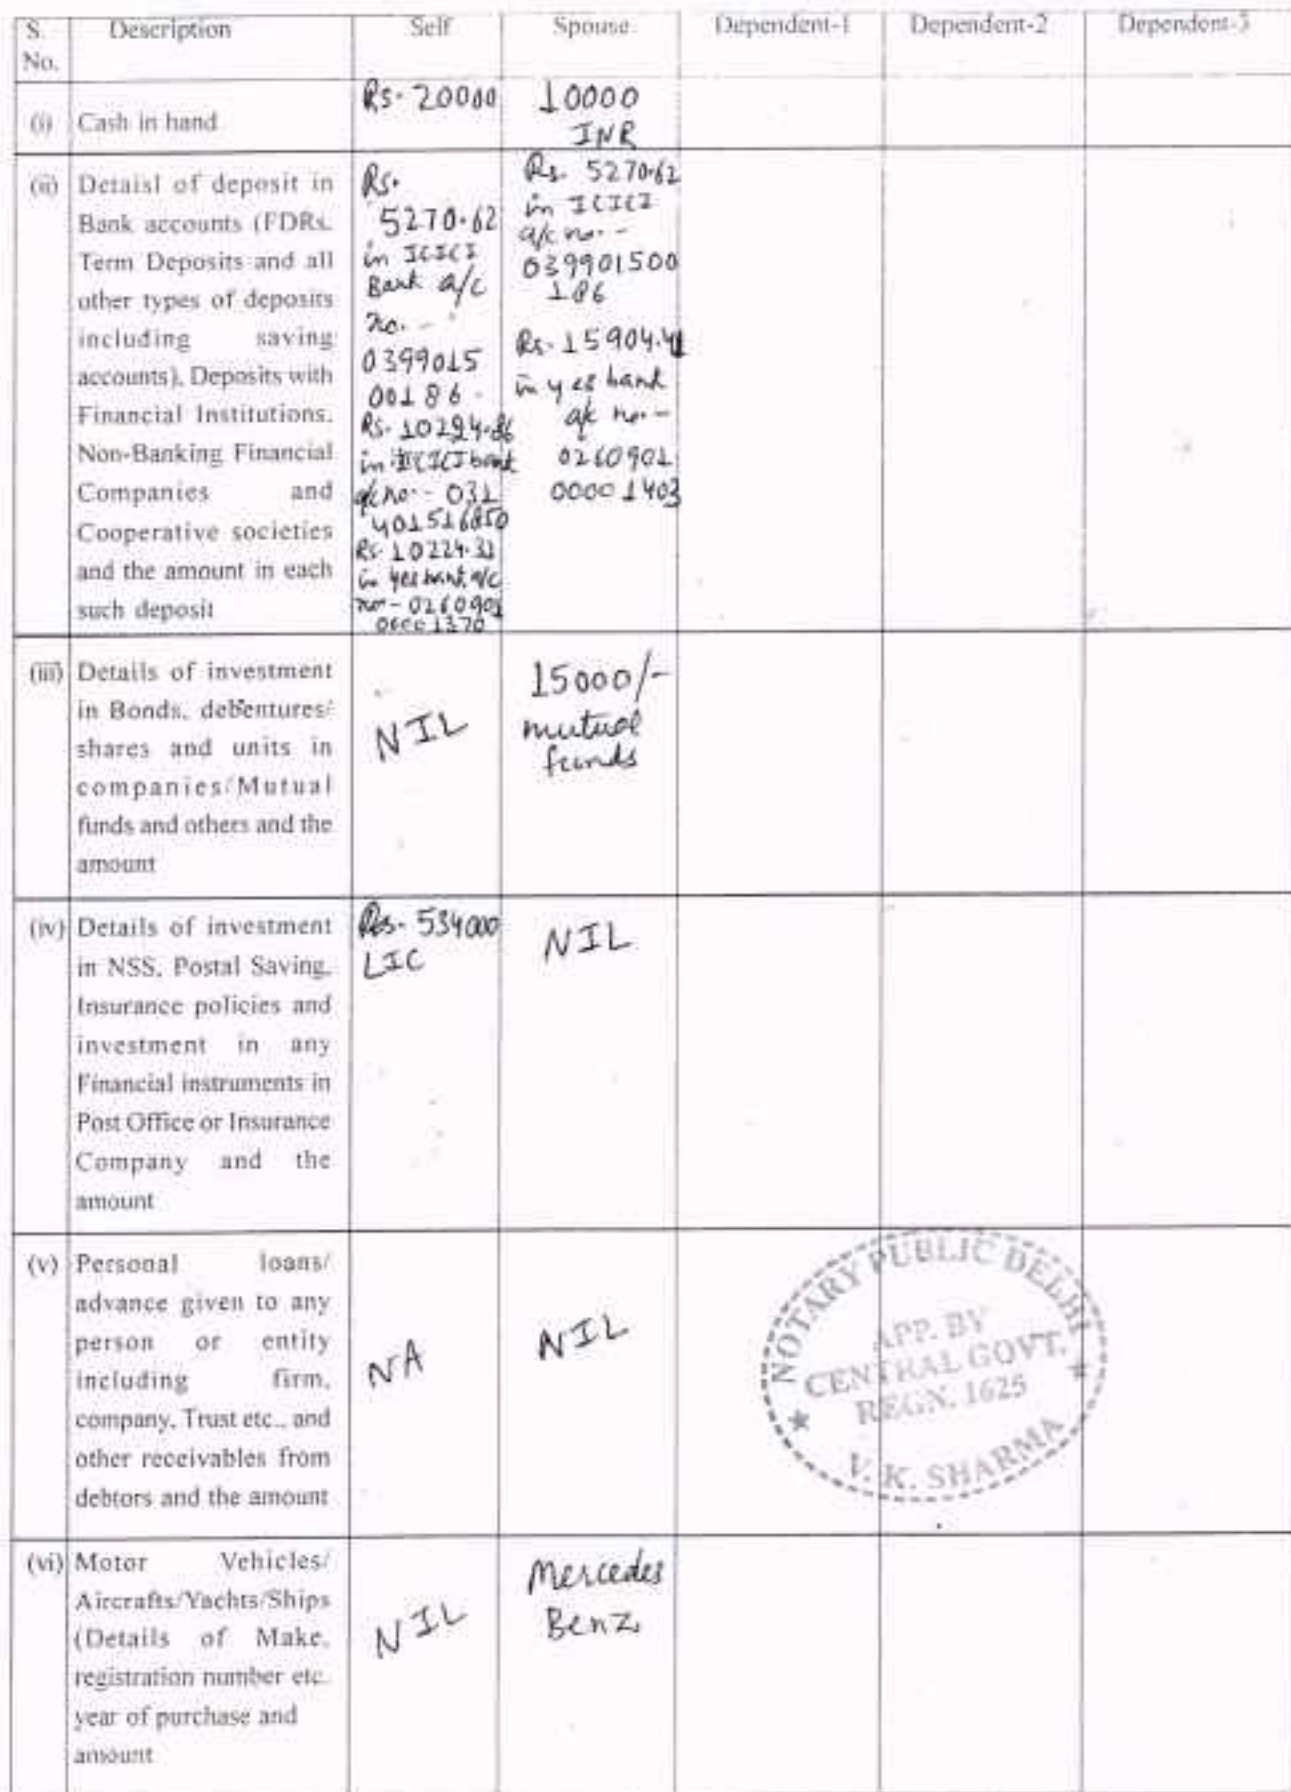 S. No.
Description
Self
Spouse
Dependent-1
Dependent-2
Dependent-3
(i)
Cash in hand
Rs. 20000
10000
INR
(ii)
Detaisl of deposit in
Bank accounts (FDRs.
Term Deposits and all
other types of deposits
including saving
accounts), Deposits with
Financial Institutions.
Non-Banking Financial
Companies and
Cooperative societies
and the amount in each
such deposit
Rs.
5270.62
in ICICI
Bank a/c
no. -
0399015
00186.
Rs. 10294.86
in ICICI bank
a/c no. - 031
401516850
Rs. 10224.33
in yes bank a/c
no - 0260901
00001370
Rs. 5270.62
in ICICI
a/c no. -
039901500
186
Rs. 15904.41
in yes bank
a/c no. -
0260901
00001403
(iii)
Details of investment
in Bonds, debentures/
shares and units in
companies/Mutual
funds and others and the
amount
NIL
15000/-
mutual
funds
(iv)
Details of investment
in NSS, Postal Saving,
Insurance policies and
investment in any
Financial instruments in
Post Office or Insurance
Company and the
amount
Rs. 534000
LIC
NIL
(v)
Personal loans/
advance given to any
person or entity
including firm,
company, Trust etc., and
other receivables from
debtors and the amount
NA
NIL
NOTARY PUBLIC DELHI
APP. BY
CENTRAL GOVT.
REGN. 1625
V. K. SHARMA
(vi)
Motor Vehicles/
Aircrafts/Yachts/Ships
(Details of Make,
registration number etc.
year of purchase and
amount
NIL
Mercedes
Benz